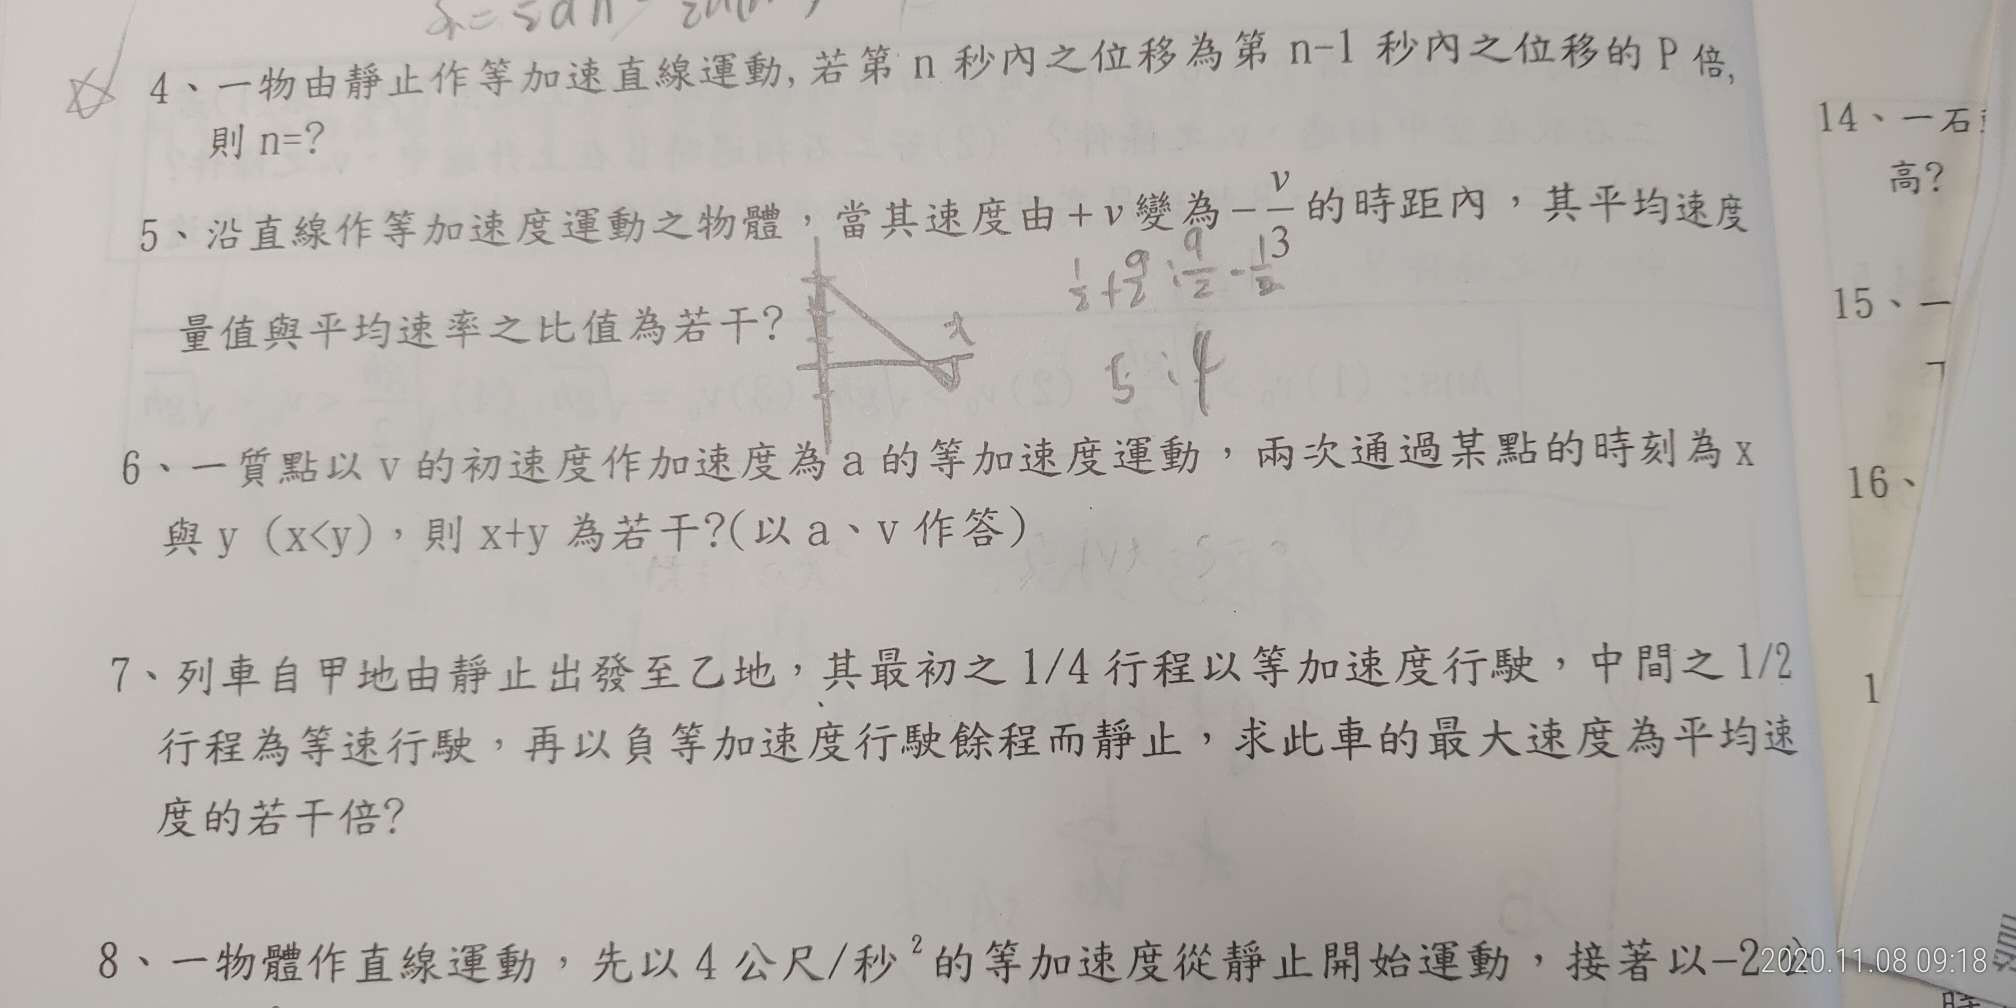 4、一物由靜止作等加速直線運動,若第 n 秒內之位移為第 n-1 秒內之位移的 P 倍,
則 n=?
5、沿直線作等加速度運動之物體，當其速度由+v變為-v/3的時距內，其平均速度
量值與平均速率之比值為若干?
1/2+9/2:9/2-1/2
5:4
6、一質點以 v 的初速度作加速度為 a 的等加速度運動，兩次通過某點的時刻為 x
與 y (x<y)，則 x+y 為若干?(以 a、v 作答)
7、列車自甲地由靜止出發至乙地，其最初之 1/4 行程以等加速度行駛，中間之 1/2
行程為等速行駛，再以負等加速度行駛餘程而靜止，求此車的最大速度為平均速
度的若干倍?
8、一物體作直線運動，先以 4 公尺/秒² 的等加速度從靜止開始運動，接著以-2
14、一石
高?
15、一
16、
1
2020.11.08 09:18